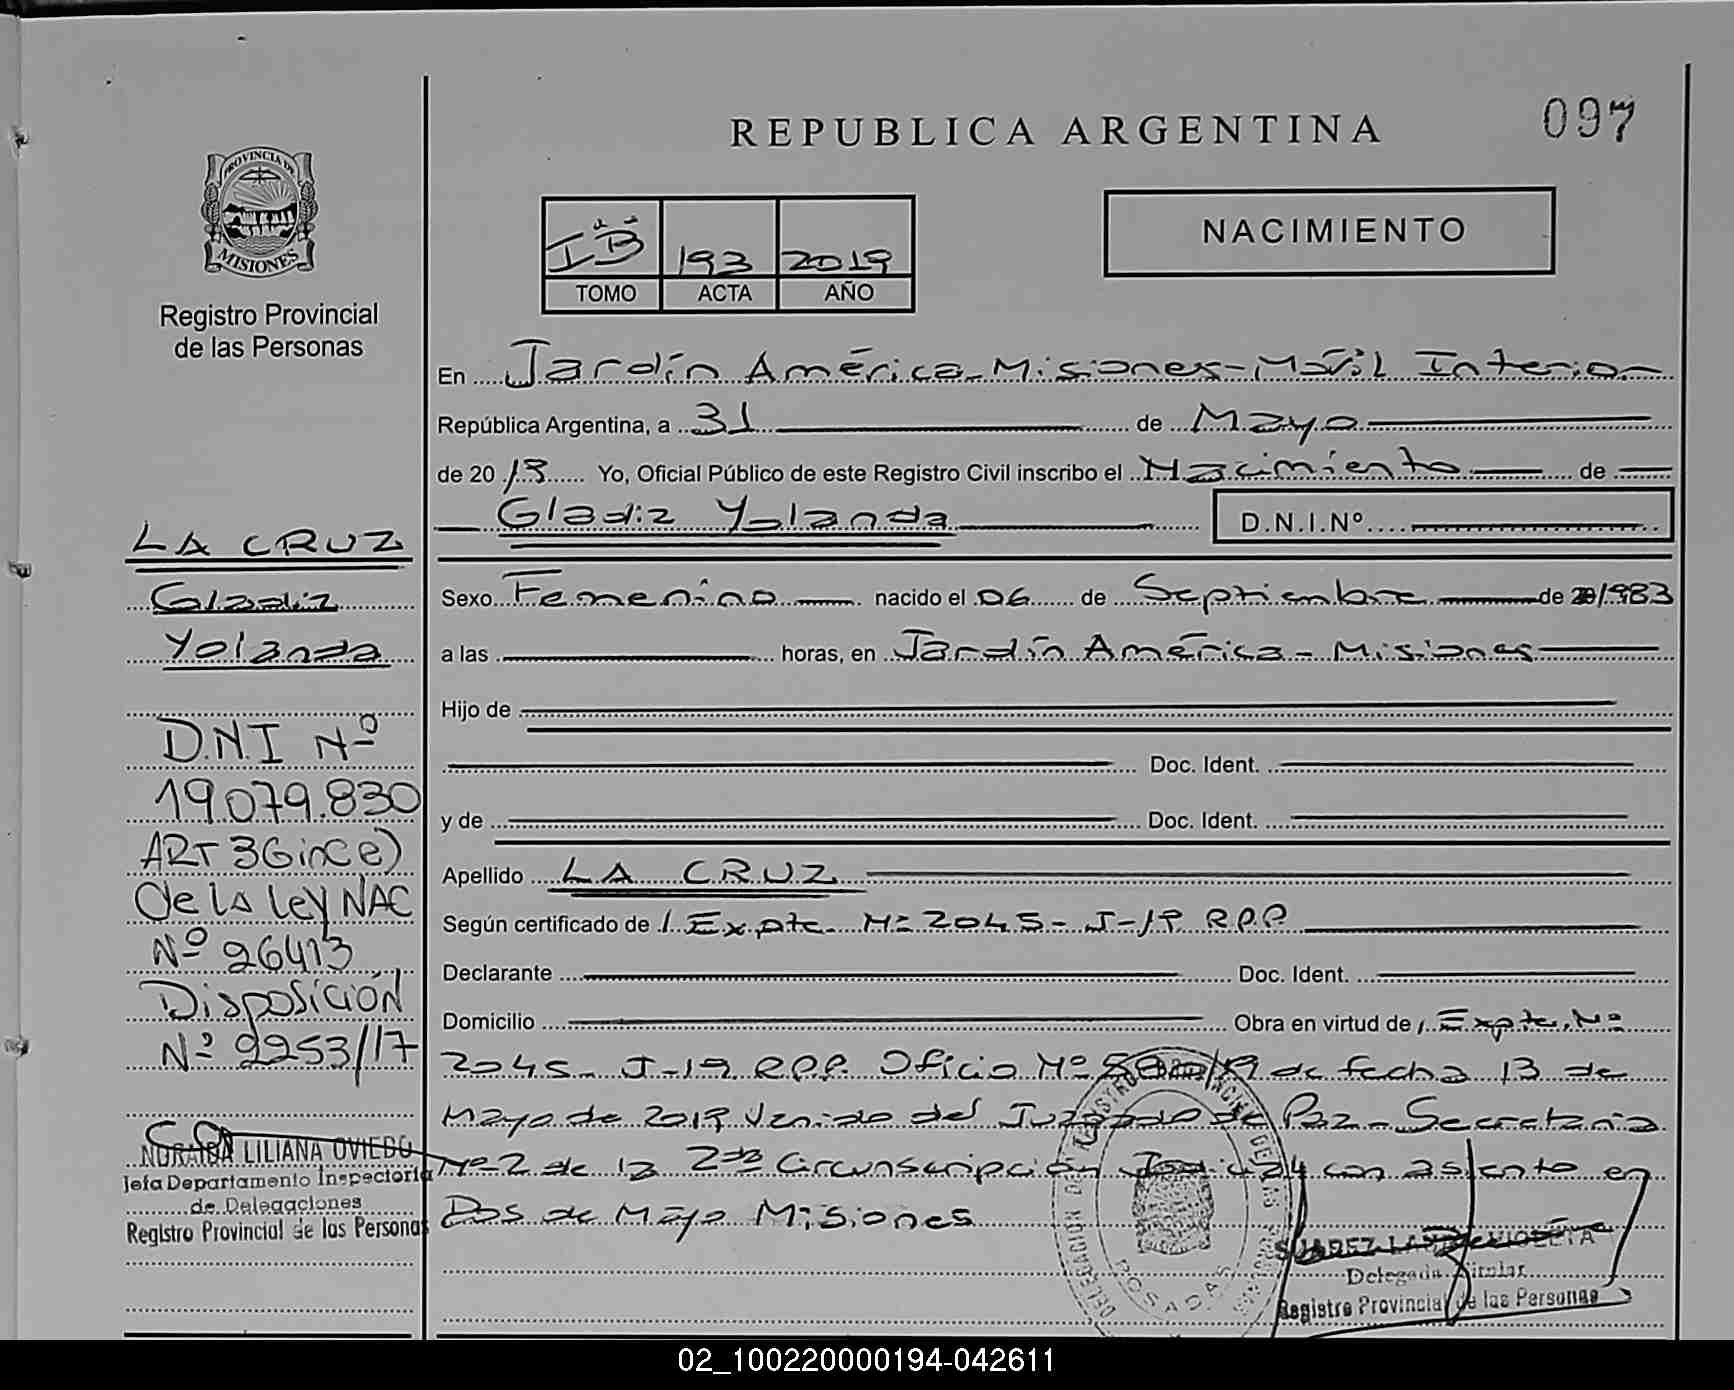 REPUBLICA ARGENTINA
097
PROVINCIA DE
MISIONES
Registro Provincial
de las Personas
I "B" 193 2019
TOMO ACTA AÑO
NACIMIENTO
En Jardín América - Misiones - Móvil Interior
República Argentina, a 31 de Mayo
de 20 19 Yo, Oficial Público de este Registro Civil inscribo el Nacimiento de
Gladiz Yolanda D.N.I.Nº
LA CRUZ
Gladiz
Yolanda
D.N.I Nº
19.079.830
ART 36 inc e)
de la Ley NAC
Nº 26413
Disposición
Nº 2253/17
NORAIDA LILIANA OVIEDO
Jefa Departamento Inspectoria
de Delegaciones
Registro Provincial de las Personas
Sexo Femenino nacido el 06 de Septiembre de 1983
a las horas, en Jardín América - Misiones
Hijo de
Doc. Ident.
y de Doc. Ident.
Apellido LA CRUZ
Según certificado de Expte. Nº 2045 - J - 19 R.P.P
Declarante Doc. Ident.
Domicilio Obra en virtud de Expte. Nº
2045 - J - 19 R.P.P. Oficio Nº /19 de fecha 13 de
Mayo de 2019 Venido del Juzgado de Paz - Secretaria
Nº 2 de la 2da Circunscripción Judicial con asiento en
Dos de Mayo Misiones
POSADAS
SUAREZ VIOLETA
Delegada Titular
Registro Provincial de las Personas
02_100220000194-042611